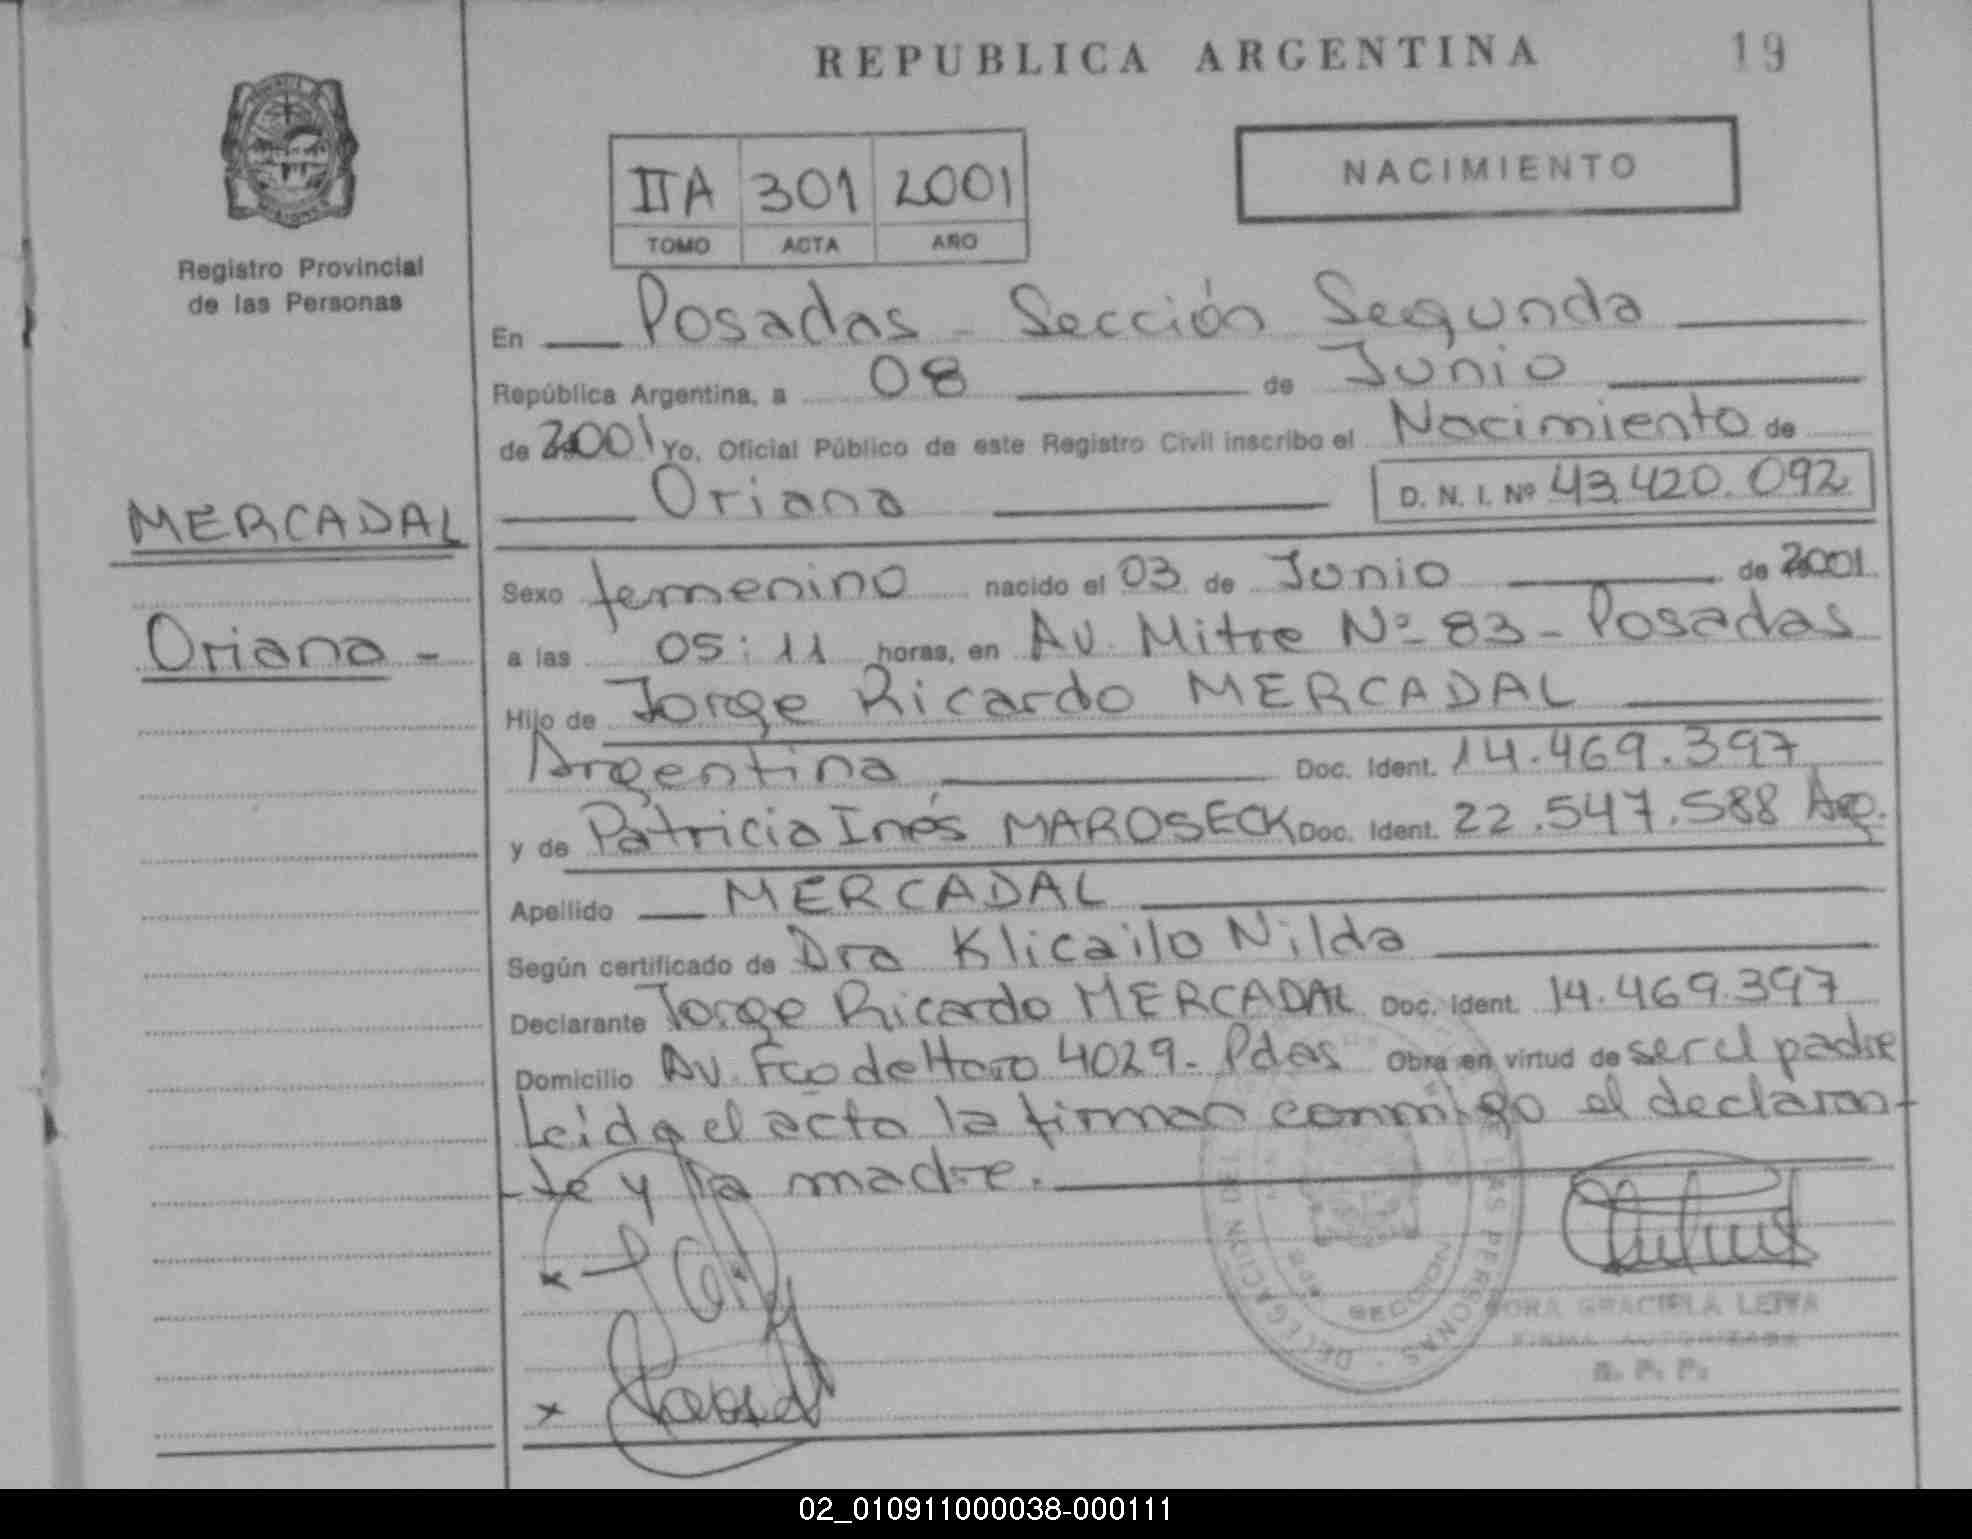 REPUBLICA ARGENTINA 19
Registro Provincial
de las Personas
IIA 301 2001
TOMO ACTA AÑO
NACIMIENTO
En Posadas - Sección Segunda
República Argentina, a 08 de Junio
de 2001 Yo, Oficial Público de este Registro Civil inscribo el Nacimiento de
Oriana D. N. I. Nº 43.420.092
MERCADAL
Oriana -
Sexo femenino nacido el 03 de Junio de 2001
a las 05:11 horas, en Av. Mitre Nº 83 - Posadas
Hijo de Jorge Ricardo MERCADAL
Argentina Doc. Ident. 14.469.397
y de Patricia Inés MAROSECK Doc. Ident. 22.547.588 Arg.
Apellido MERCADAL
Según certificado de Dra Klicailo Nilda
Declarante Jorge Ricardo MERCADAL Doc. Ident. 14.469.397
Domicilio Av. Fco de Haro 4029 - Pdas Obra en virtud de ser el padre
Leida el acta la firman conmigo el declaran-
-te y la madre.
DELEGACION
LAS PERSONAS
SECCION
GRACIELA LEIVA
FIRMA AUTORIZADA
R. P. P.
02_010911000038-000111